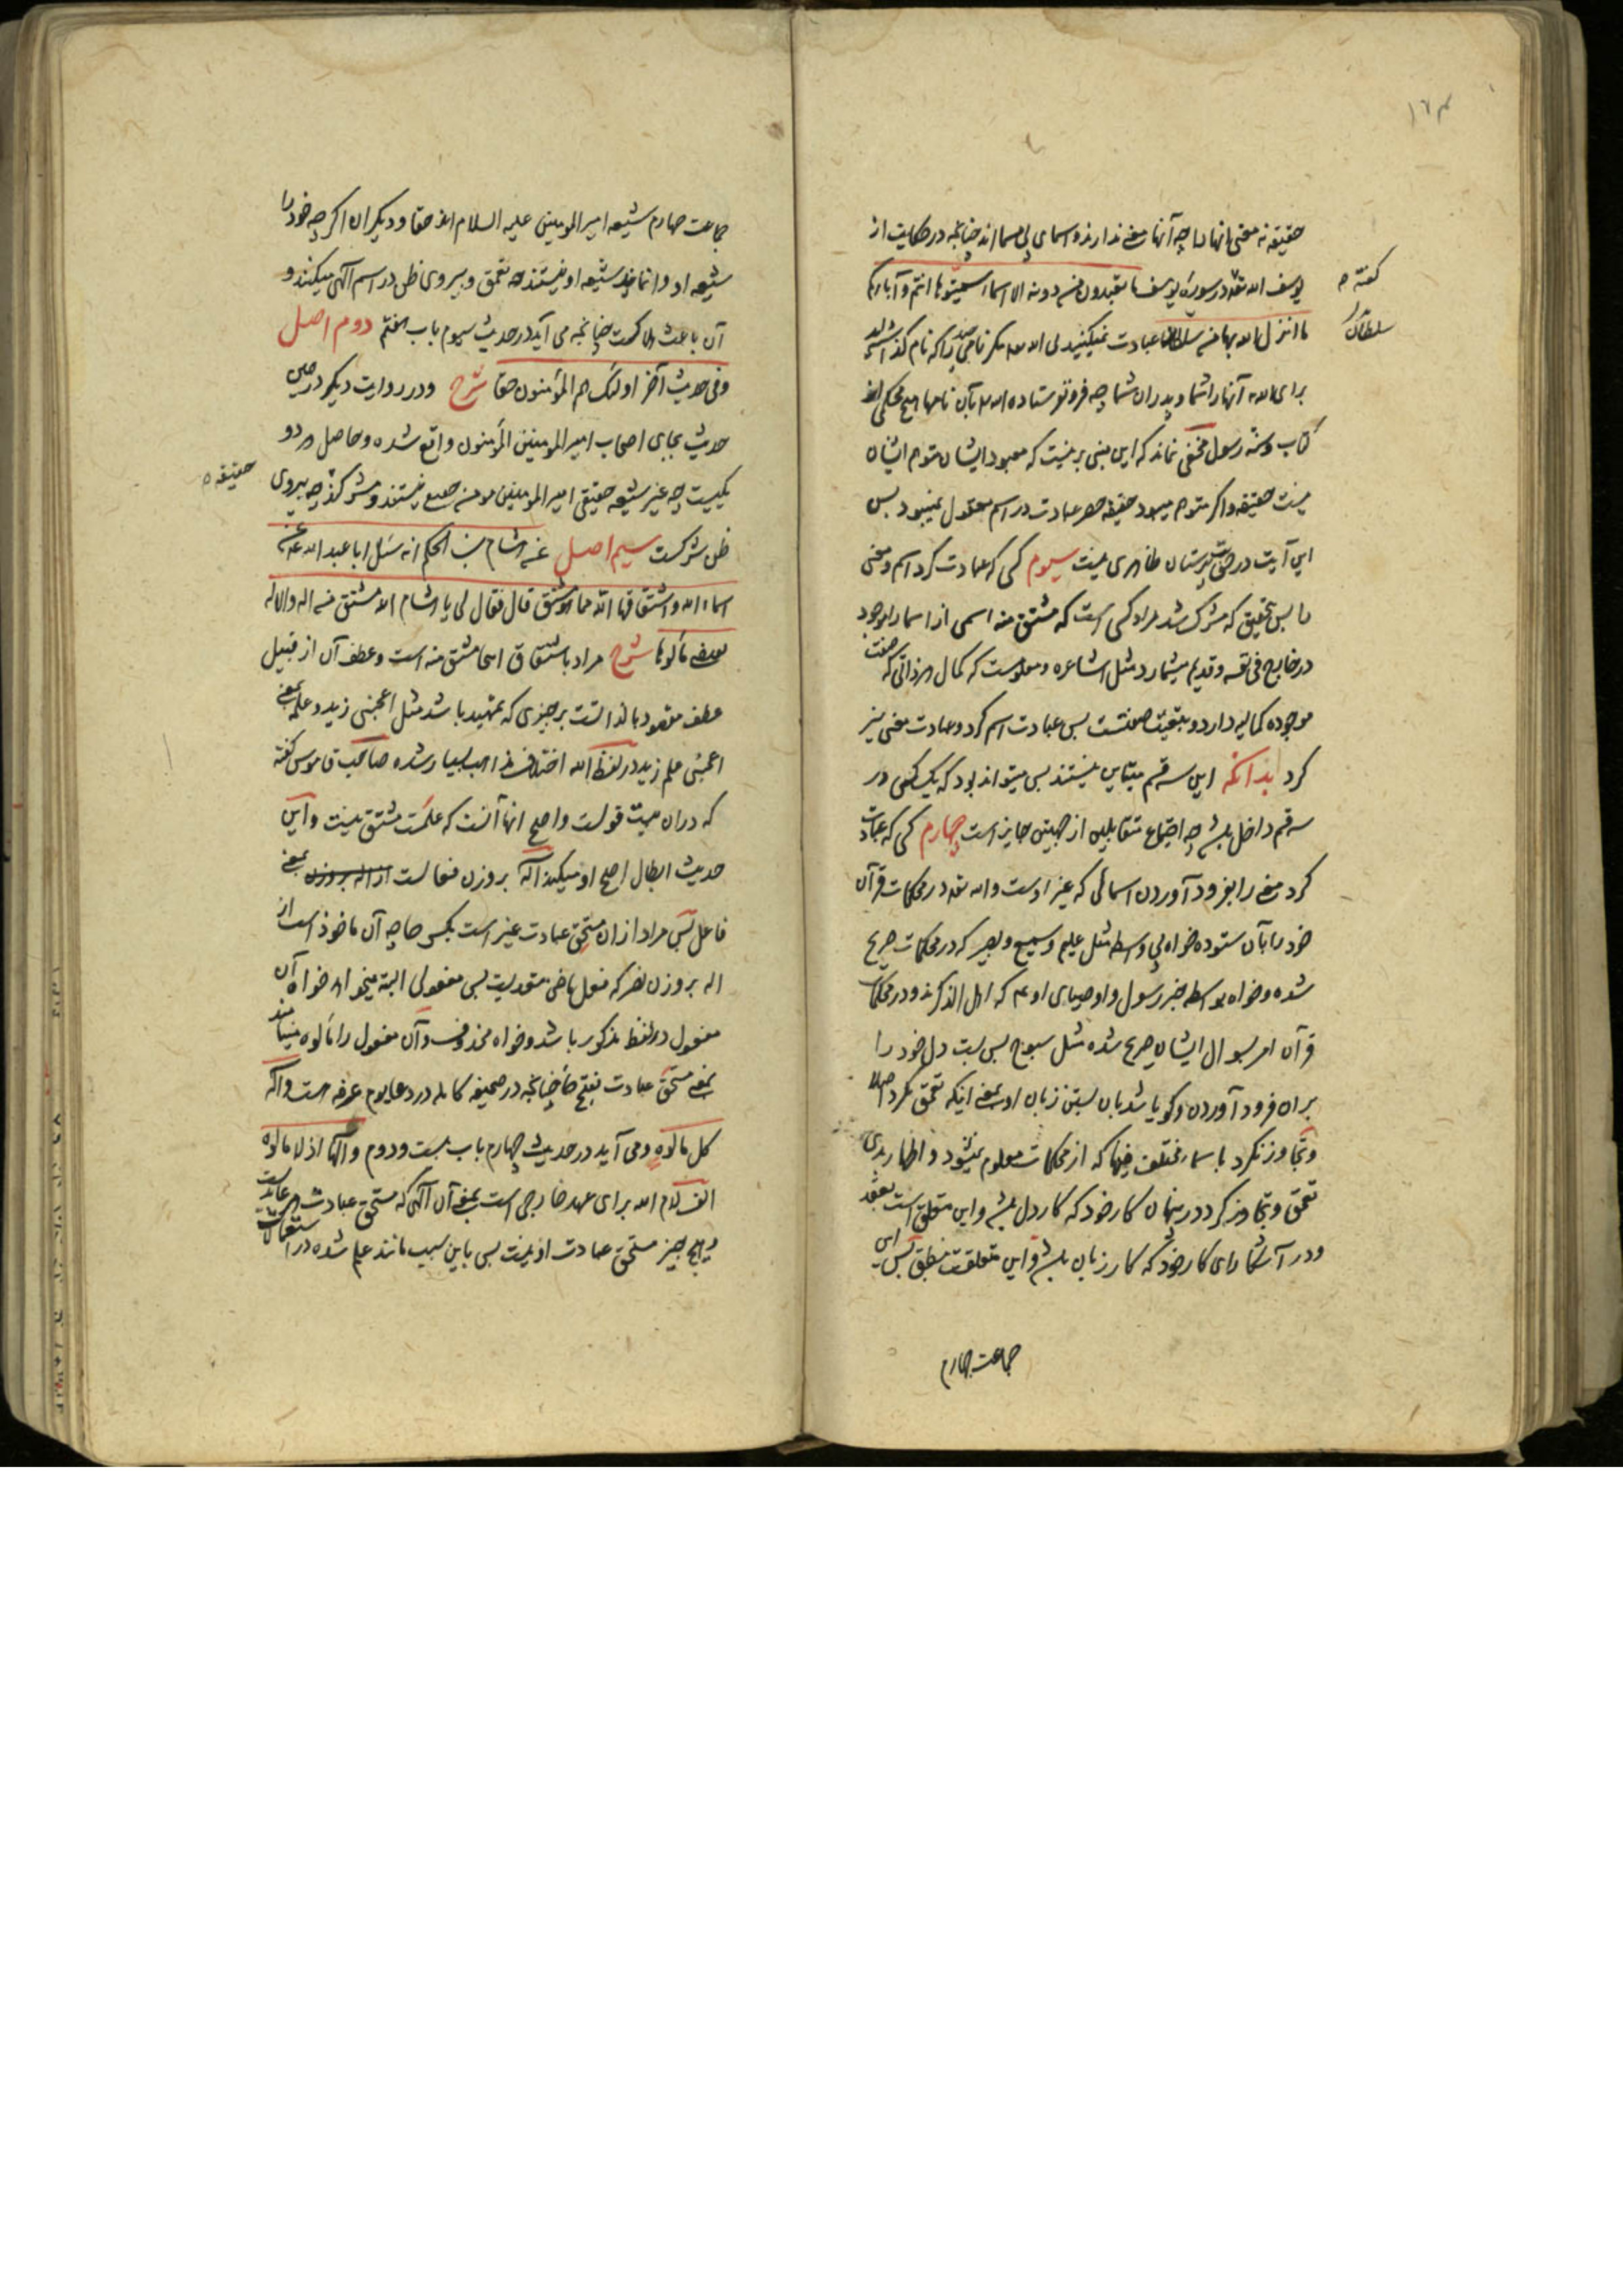 ۱۶۴
حقیقه نه معنی انها را چه آنها معنی ندارند و اسمای بی مسما اند چنانچه در حکایت از
یوسف الله تعه در سوره یوسف ما تعبدون من دونه الا اسماء سمیتموها انتم و آباءکم
گفته
ما انزل الله بها من سلطان عبادت نمیکنید بی الله مکر نامی چند را که نام کذاشته اید
سلطان
برای الله آنها را شما و پدران شما چه فرو نفرستاده الله بآن نامها هیچ محکمی از
کتاب و سنه رسول مخفی نماند که این مبنی بر نیست که معبود ایشان متوهم ایشان
نیست حقیقه و اکر متوهم میبود حقیقه حصر عبادت در اسم معقول نمیبود پس
این آیت در حق بت پرستان ظاهری نیست سیوم کسی که عبادت کرد اسم و معنی
را پس بتحقیق که مشرک شد مراد کسی است که مشتق منه اسمی از اسما را موجود
در خارج فی نفسه و قدیم میشمارد مثل اشاعره و معلومست که کمال هر ذاتی که صفت
موجوده کمالیه دارد و بتبعیت صفتست پس عبادت اسم کرد و عبادت معنی نیز
کرد بدانکه این سه قسم متباین نیستند پس میتواند بود که یک کس در
سه قسم داخل باشد چه اجتماع متقابلین از جهتین جایز است چهارم کسی که عبادت
کرد معنی را بفرود آوردن اسمائی که غیر اوست و الله تعه در محکمات قرآن
خود را بآن ستوده خواه بی واسطه مثل علیم و سمیع و بصیر که در محکمات صریح
شده و خواه بواسطه خبر رسول و اوصیای او عم که اهل الذکرند و در محکمات
قرآن امر بسوال ایشان صریح شده مثل سبوح پس بست دل خود را
بران فرود آوردن و کویا شد بان بستن زبان او بمعنی اینکه تعمق نکرد اصلا
و تجاوز نکرد باسماء مختلف فیها که از محکمات معلوم نمیشود و اظهار بدی
تعمق و تجاوز کرد در پنهان کار خود که کار دل باشد و این متعلق است بعقد
و در آشکارای کار خود که کار زبان باشد و این متعلقست بنطق پس این
جماعت چهارم
جماعت چهارم شیعه امیر المومنین علیه السلام اند حقا و دیکران اکرچه خود را
شیعه او وانمایند شیعه او نیستند چه تعمق و پیروی ظن در اسم آلهی میکنند و
آن باعث هلاکست چنانچه می آید در حدیث سیوم باب هفتم دوم اصل
وفی حدیث آخر اولئک هم المؤمنون حقا شرح و در روایت دیکر در همین
حدیث بجای اصحاب امیر المومنین المؤمنون واقع شده و حاصل هر دو
یکیست چه غیر شیعه حقیقی امیر المومنین مومن جمیع نیستند و مشرکند چه پیروی
حقیقه
ظن شرکست سیم اصل عن هشام بن الحکم انه سئل ابا عبد الله ع عن
اسماء الله و اشتقاقها الله مما هو مشتق قال فقال لی یا هشام الله مشتق من اله و الاله
یقتضی مألوها شرح مراد باشتقاق اسما مشتق منه است و عطف آن از قبیل
عطف مقصود بالذاتست بر چیزی که تمهید باشد مثل اعجبنی زید و علمه بمعنی
اعجبنی علم زید در لفظ الله اختلاف مذاهب بسیار شده صاحب قاموس کفته
که دران بیست قولست و اصح انها آنست که علمست مشتق نیست و این
حدیث ابطال اصح او میکند آله بروزن فعالست بمعنی
فاعل پس مراد ازان مستحق عبادت غیر است بکس چه آن ماخوذ است از
اله بروزن نصر که فعل ماضی متعدیست پس مفعولی البته میخواهد خواه آن
مفعول در لفظ مذکور باشد و خواه محذوف و آن مفعول را مألوه مینامند
بمعنی مستحق عبادت بفتح حا چنانچه در صحیفه کامله در دعا یوم عرفه است و اله
کل مألوه و می آید در حدیث چهارم باب بیست و دوم و الها اذ لا مألوه
الف لام الله برای عهد خارجی است بمعنی آن آلهی که مستحق عبادت هر عابدست
و هیچ چیز مستحق عبادت او نیست پس باین سبب مانند علم شده در استعمالات